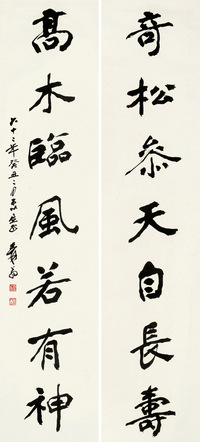 奇松參天自長壽
髙木臨風若有神
六十二年癸丑二月 爰翁